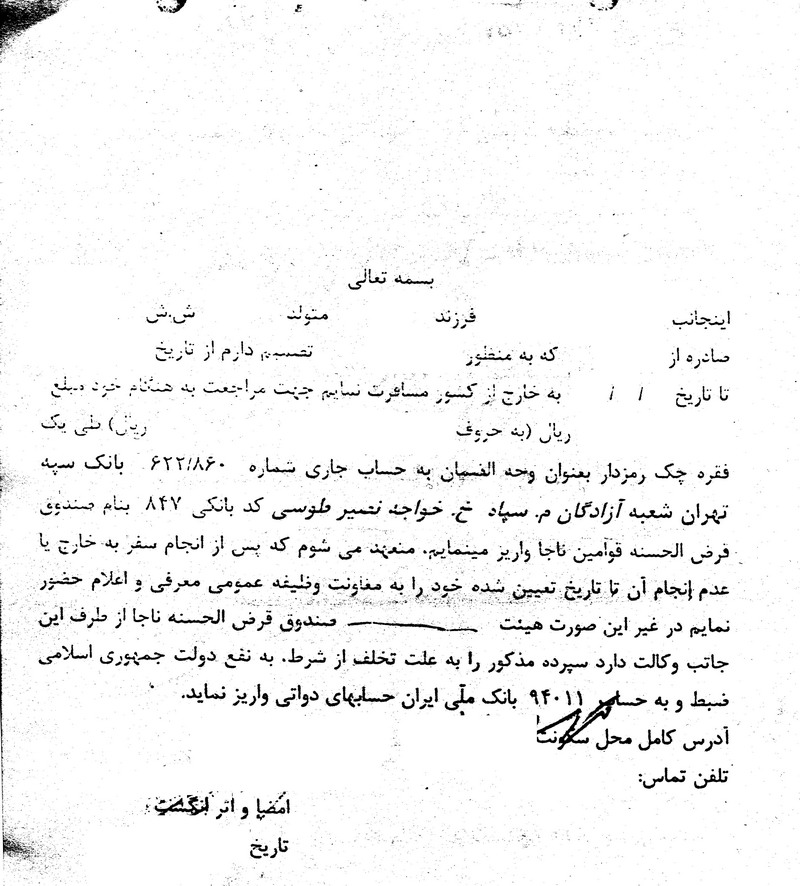 بسمه تعالی
اینجانب فرزند متولد ش.ش
صادره از که به منظور تصمیم دارم از تاریخ
تا تاریخ / / به خارج از کشور مسافرت نمایم جهت مراجعت به هنگام خود مبلغ
ریال (به حروف ریال) طی یک
فقره چک رمزدار بعنوان وجه الضمان به حساب جاری شماره ۶۲۲/۸۶۰ بانک سپه
تهران شعبه آزادگان م. سپاه خ. خواجه نصیر طوسی کد بانکی ۸۴۷ بنام صندوق
قرض الحسنه قوامین ناجا واریز مینمایم. متعهد می شوم که پس از انجام سفر به خارج یا
عدم انجام آن تا تاریخ تعیین شده خود را به معاونت وظیفه عمومی معرفی و اعلام حضور
نمایم در غیر این صورت هیئت صندوق قرض الحسنه ناجا از طرف این
جانب وکالت دارد سپرده مذکور را به علت تخلف از شرط. به نفع دولت جمهوری اسلامی
ضبط و به حساب ۹۴۰۱۱ بانک ملی ایران حسابهای دولتی واریز نماید.
آدرس کامل محل سکونت
تلفن تماس:
امضا و اثر انگشت
تاریخ